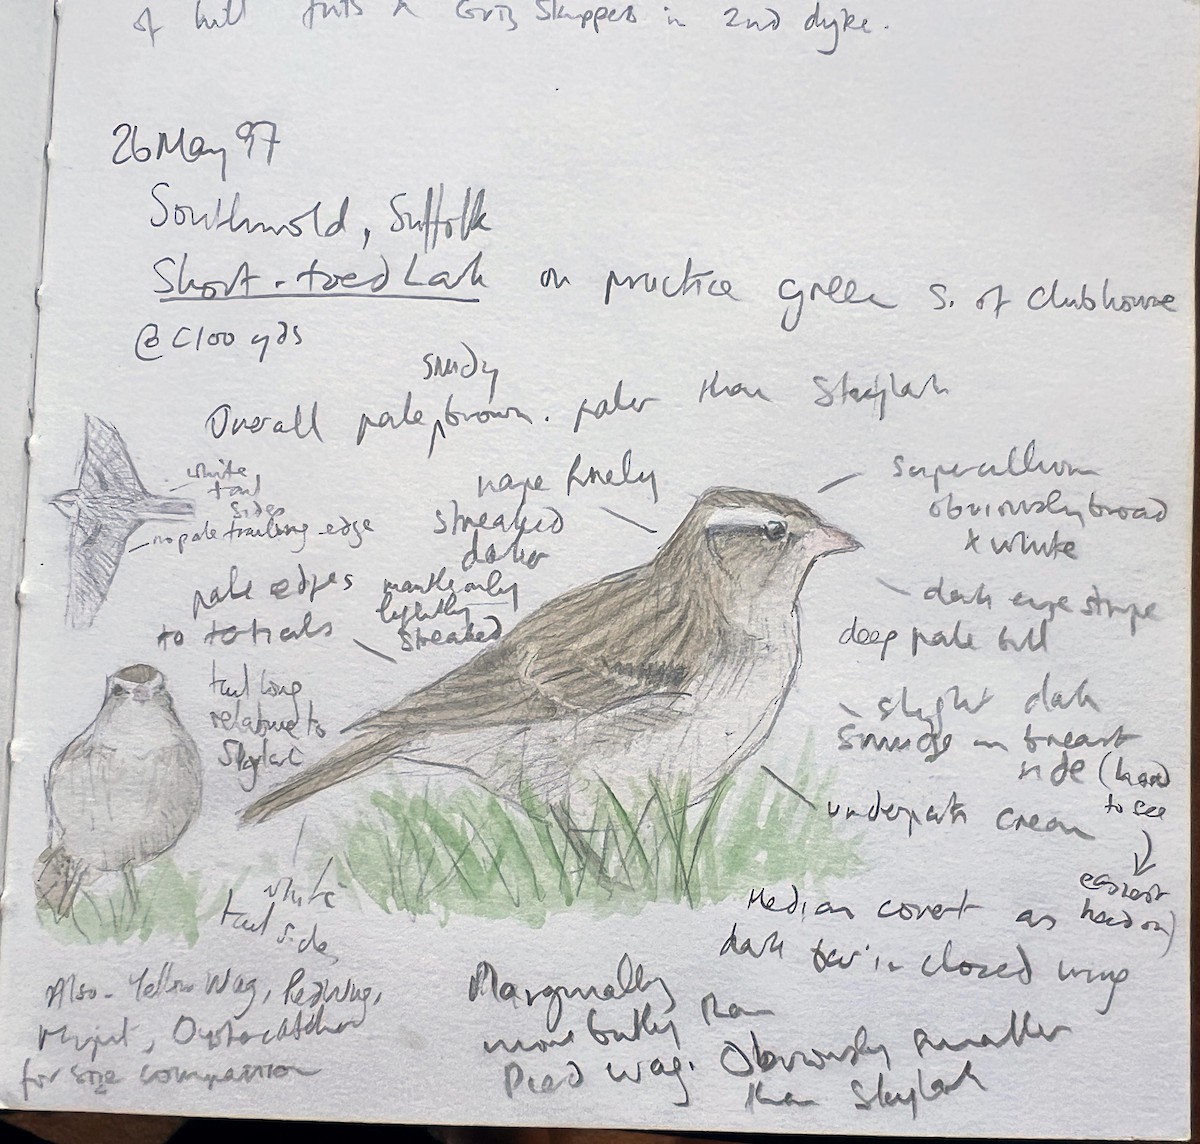 of hill
Griz Skippers in 2nd dyke.
26 May 97
Southwold, Suffolk
Short-toed Lark on practice green S. of clubhouse
@ C100 yds
sandy
Overall pale brown. paler than Skylark
white
tail
sides
no pale trailing edge
nape finely
streaked
darker
supercilium
obviously broad
& white
pale edges
to tertials
mantle only
lightly
streaked
dark eye stripe
deep pale bill
tail long
relative to
Skylark
slight dark
smudge on breast
side (hard
to see
easiest
head on)
underparts cream
white
tail side
Median covert as
dark bar in closed wing
Also - Yellow Wag, Redwing,
Pipit, Oystercatcher
for size comparison
Marginally
more bulky than
Pied Wag. Obviously smaller
than Skylark